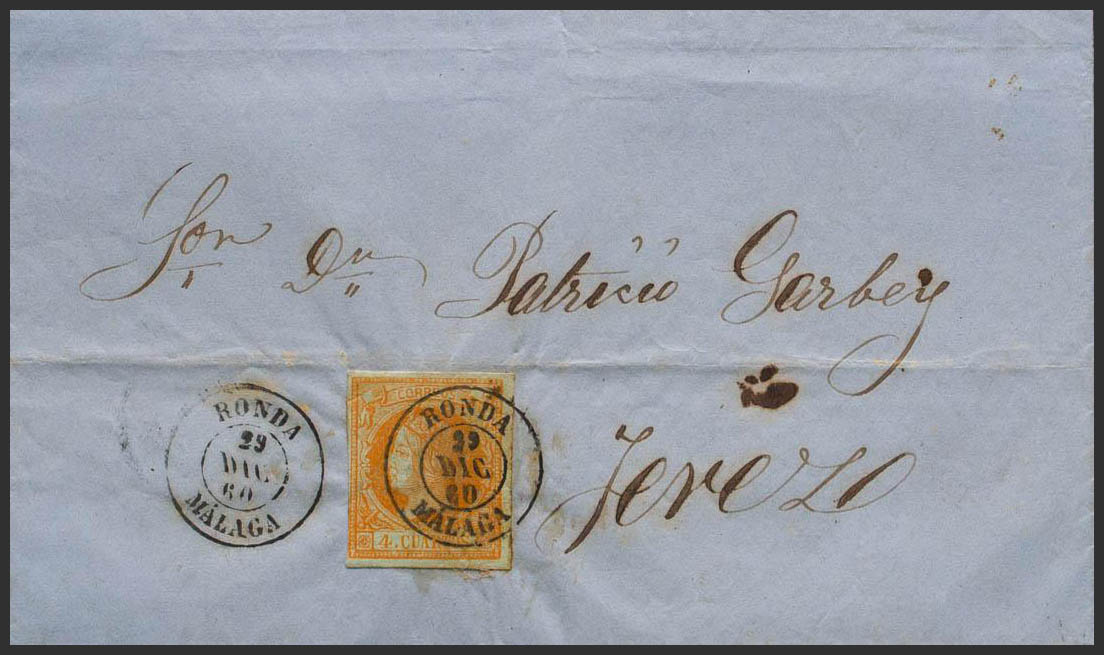 Sor Dn Patricio Garbey
Jerez
RONDA
29
DIC
60
MÁLAGA
CORRE
RONDA
29
DIC
60
MÁLAGA
4. CUA